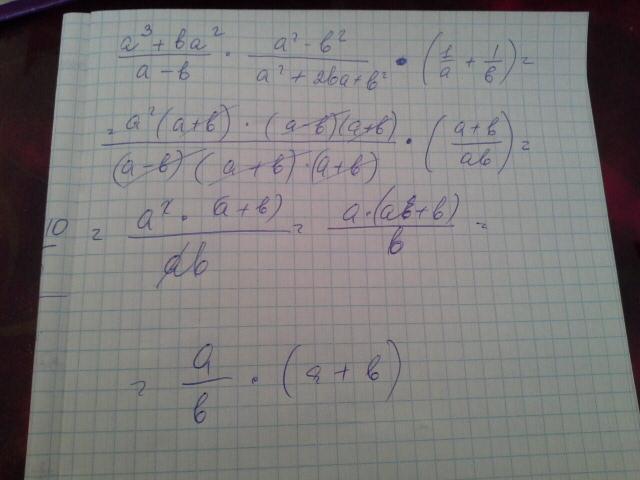 (a³ + ba²)/(a - b) · (a² - b²)/(a² + 2ba + b²) · (1/a + 1/b) =
= (a²(a+b) · (a-b)(a+b))/((a-b)(a+b)·(a+b)) · ((a+b)/(ab)) =
10 = (a² · (a+b))/(ab) = (a·(a+b))/b =
= a/b · (a+b)